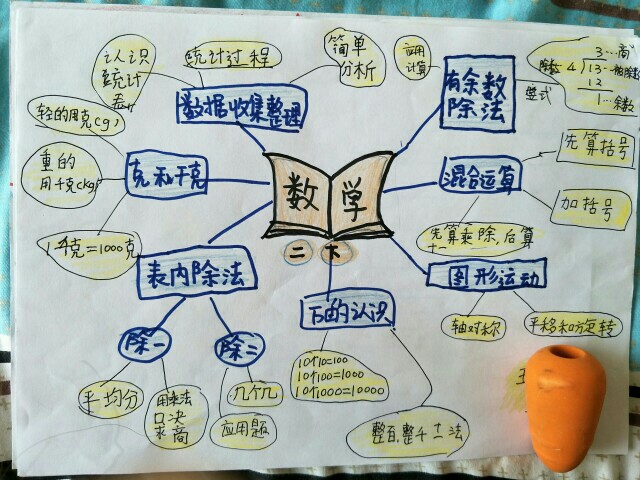 数学
二下
数据收集整理
认识
统计
表
统计过程
简单
分析
有余数
除法
应用
计算
竖式
3…商
除数4
13
12
1…余数
混合运算
先算括号
加括号
先算乘除,后算
+-
图形运动
轴对称
平移和旋转
万的认识
10个10=100
10个100=1000
10个1000=10000
整百、整千+-法
表内除法
除一
平均分
用乘法
口决
求商
除二
几个几
应用题
克和千克
轻的用克(g)
重的
用千克(kg)
1千克=1000克